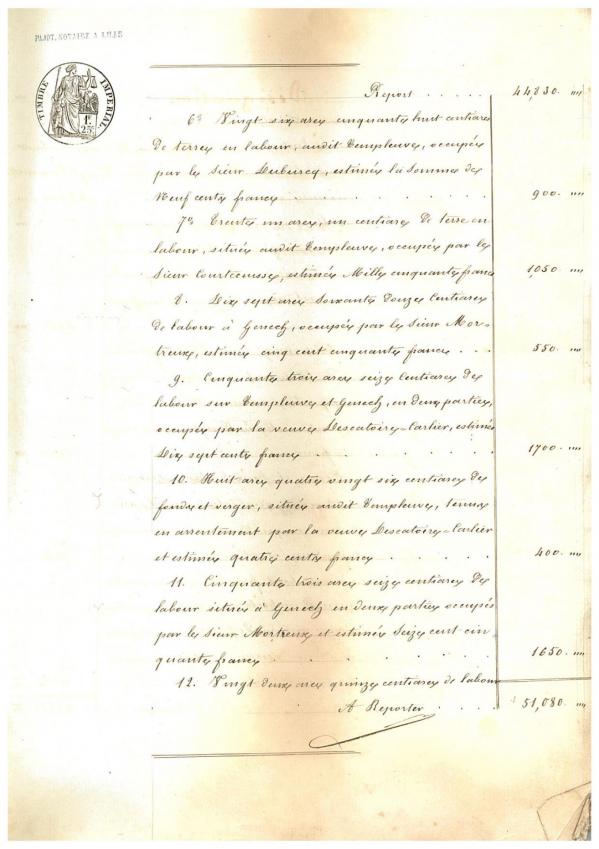 PAJOT, NOTAIRE A LILLE
TIMBRE IMPERIAL
1f 25c
Report . . . . . 44,830. ""
6° Vingt six ares cinquante huit centiares
de terre en labour, audit Templeuve, occupée
par le sieur Dubureq, estimée la somme de
Neuf cents francs . . . . . . 900 ""
7° Trente un ares, un centiare de terre en
labour, située audit Templeuve, occupée par le
sieur Courtecuisse, estimée Mille cinquante francs 1,050 ""
8. Dix sept ares soixante douze centiares
de labour à Genech, occupée par le sieur Mor-
treux, estimée cinq cent cinquante francs . . . 550. ""
9. Cinquante trois ares seize centiares de
labour sur Templeuve et Genech, en deux parties,
occupée par la veuve Descatoire-Carlier, estimée
Dix sept cents francs . . . . . . 1700. ""
10. Huit ares quatre vingt six centiares de
fonds et verger, située audit Templeuve, tenue
en arrentement par la veuve Descatoire-Carlier
et estimée quatre cents francs . . . . . 400 ""
11. Cinquante trois ares seize centiares de
labour située à Genech en deux parties occupée
par le sieur Mortreux et estimée seize cent cin-
quante francs . . . . . . 1650. ""
12. Vingt deux ares quinze centiares de labour
A Reporter . . . . 51,080. ""